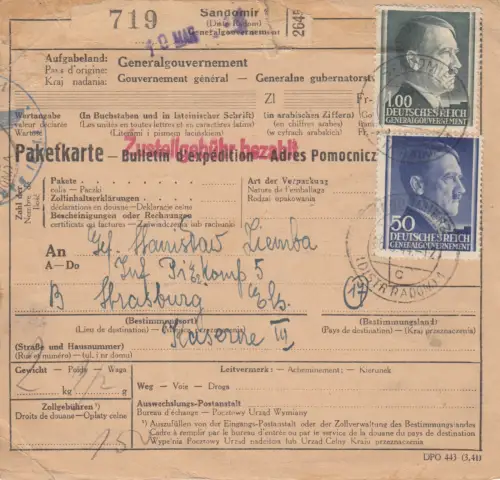 719
Sandomir
(Distr. Radom)
Generalgouvernement
2649
10 MAR
Aufgabeland: Generalgouvernement
Pays d'origine: Gouvernement général — Generalne gubernatorstwo
Kraj nadania:
Zl Fr
1.00
DEUTSCHES REICH
GENERALGOUVERNEMENT
Wertangabe (In Buchstaben und in lateinischer Schrift) (in arabischen Ziffern)
valeur déclarée (Les unités en toutes lettres et en caractères latins) (en chiffres arabes)
Wartość (Literami i pismem łacińskim) (w cyfrach arabskich)
Zustellgebühr bezahlt
Paketkarte — Bulletin d'expédition — Adres Pomocniczy
Zahl der
Nombre
Ilość
Pakete
colis — Paczki
Zollinhaltserklärungen
déclarations en douane — Deklaracje celne
Bescheinigungen oder Rechnungen
certificats ou factures — Zaświadczenia lub rachunki
Art der Verpackung
Nature de l'emballage
Rodzaj opakowania
50
DEUTSCHES REICH
GENERALGOUVERNEMENT
c
(DISTR RADOM)
An Gef. Stanislav Ziemba
A — Do Inf Piz Komp 5
B Strasburg Els. 17
(Bestimmungsort) (Bestimmungsland)
(Lieu de destination) — (Miejsce przeznaczenia) (Pays de destination) — (Kraj przeznaczenia)
Kaserne III
(Straße und Hausnummer)
(Rue et numéro) — (ul. i nr domu)
Gewicht — Poids — Waga
kg g
Leitvermerk: — Acheminement: — Kierunek
Weg — Voie — Droga
Zollgebühren ¹)
Droits de douane — Opłaty celne
Auswechslungs-Postanstalt
Bureau d'échange — Pocztowy Urząd Wymiany
¹) Auszufüllen von der Eingangs-Postanstalt oder der Zollverwaltung des Bestimmungslandes
Cadre à remplir par le bureau d'entrée ou par le service de la douane du pays de destination
Wypełnia Pocztowy Urząd nadejścia lub Urząd Celny Kraju przeznaczenia
DPO 443 (3,41)